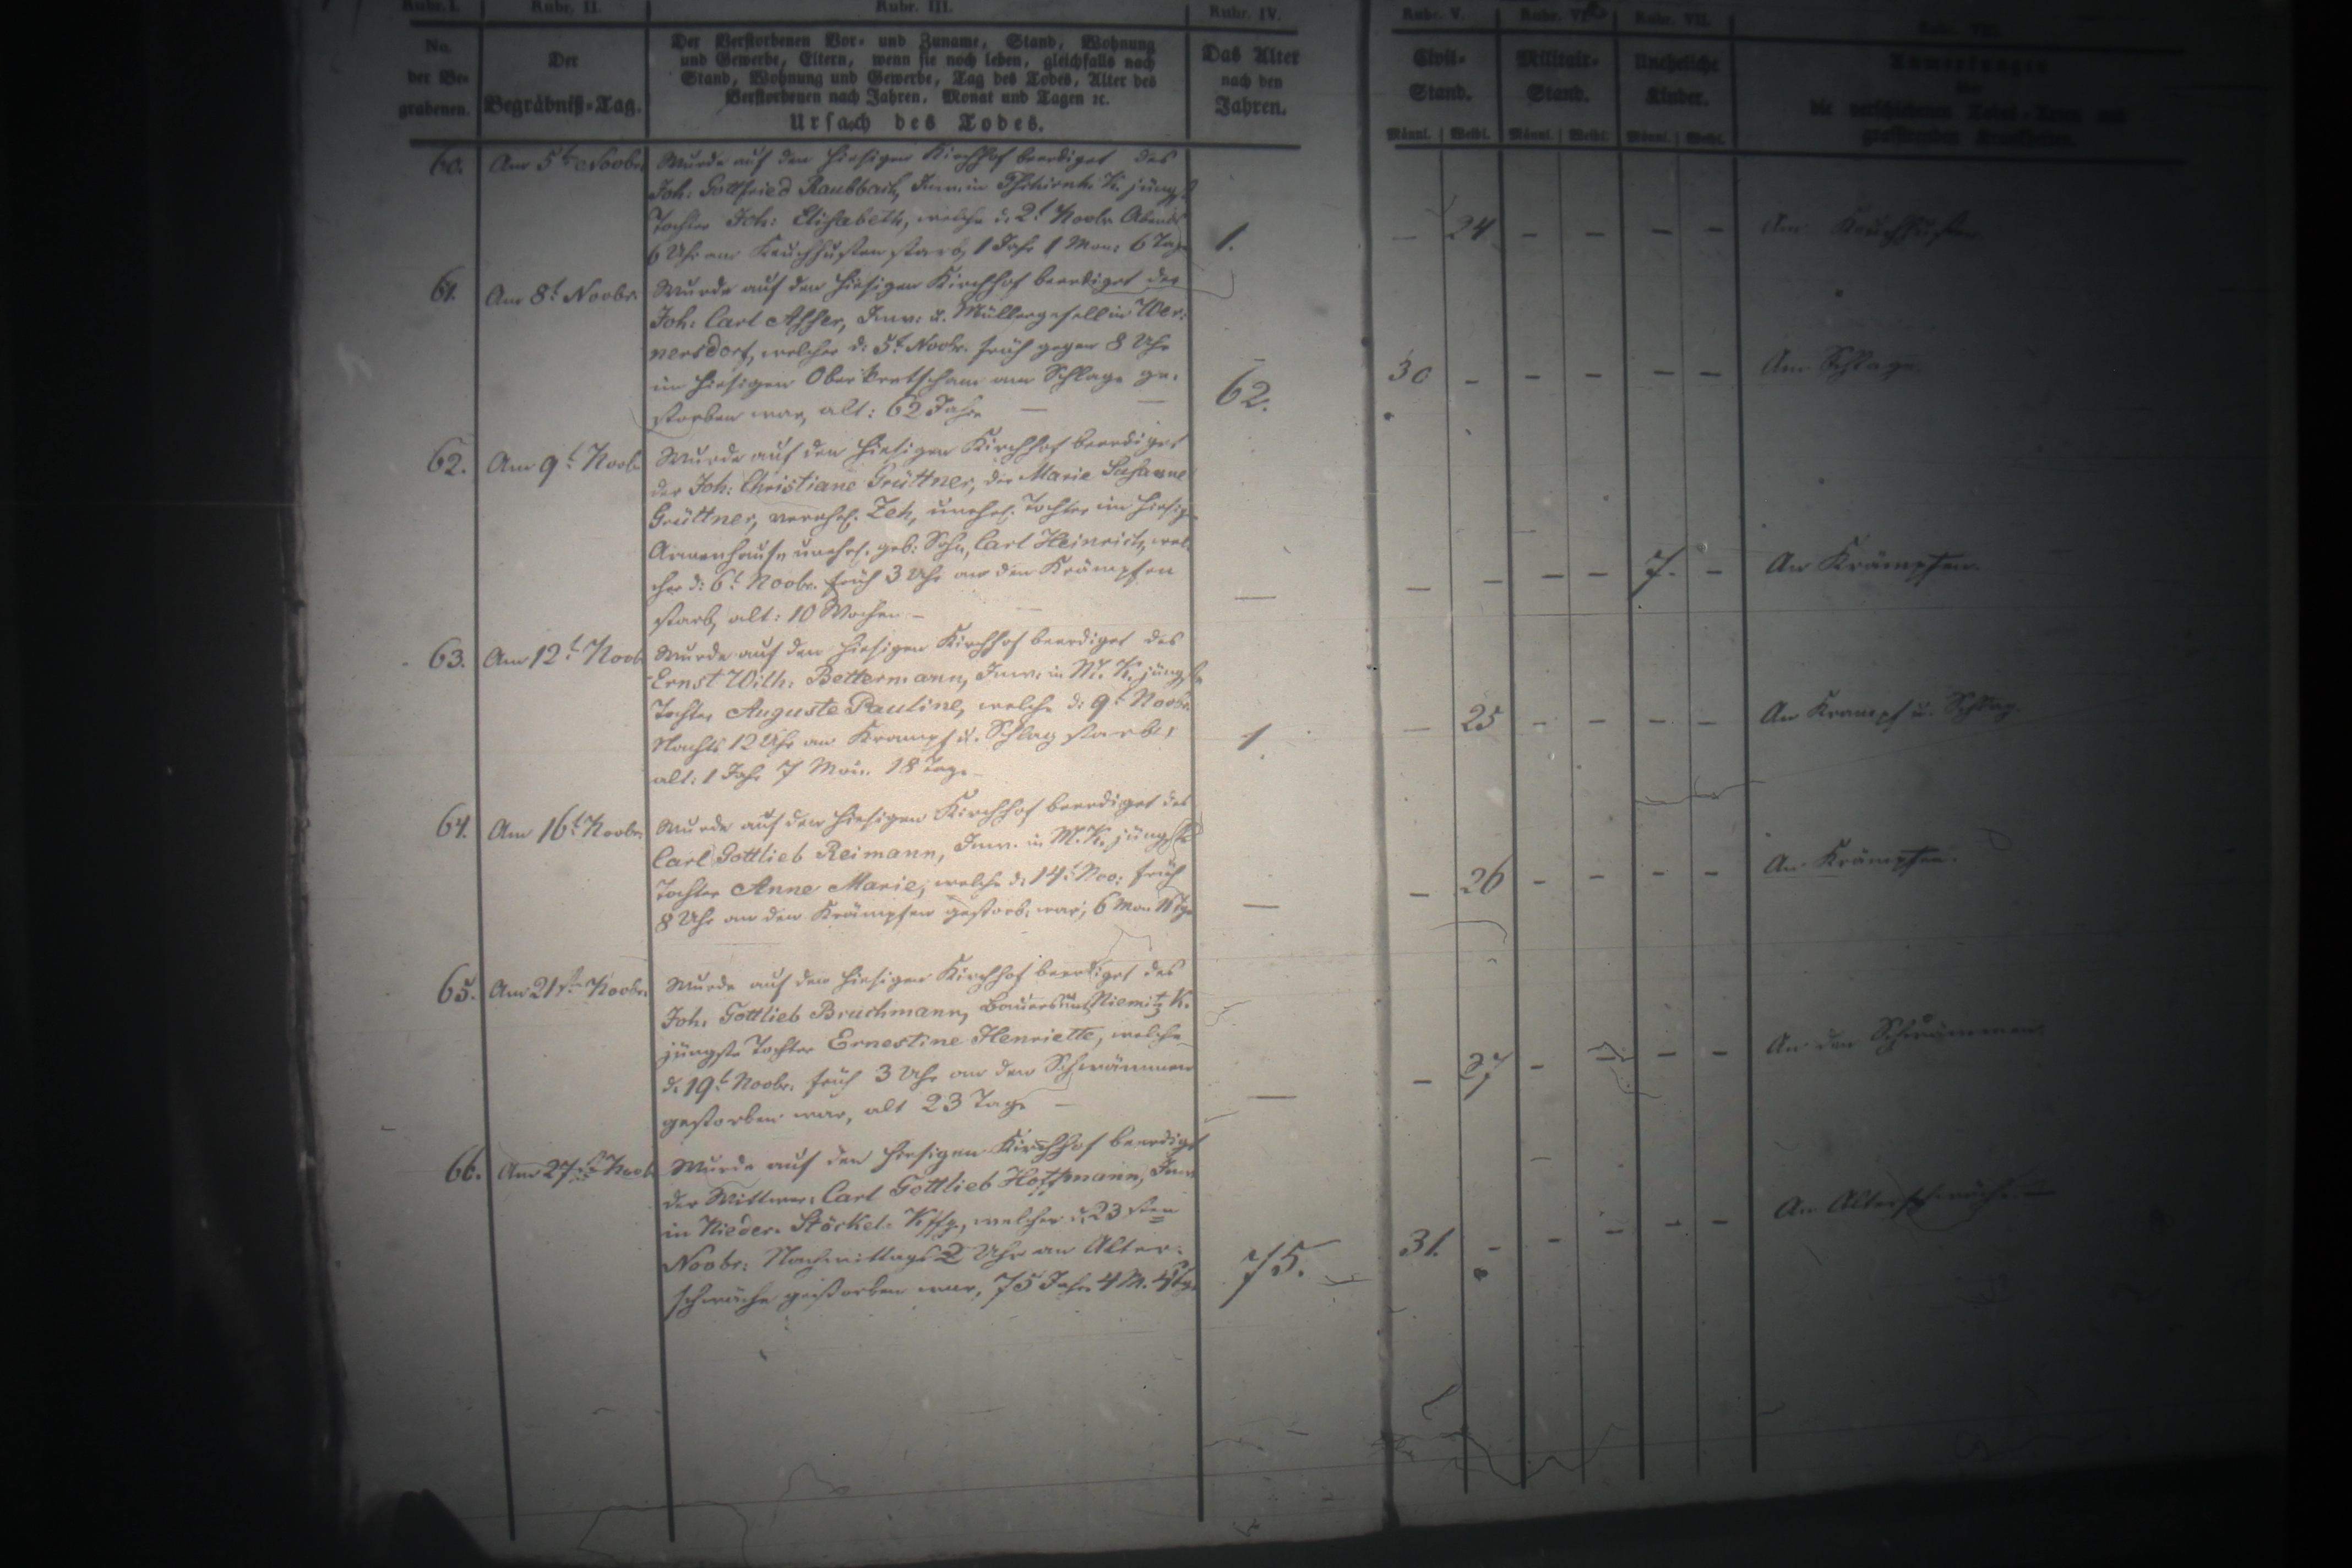 Rubr. I. Rubr. II. Rubr. III. Rubr. IV. Rubr. V. Rubr. VI. Rubr. VII. Rubr. VIII.
No. der Be- grabenen.
Der Begräbniß-Tag.
Der Verstorbenen Vor- und Zuname, Stand, Wohnung
und Gewerbe, Eltern, wenn sie noch leben, gleichfalls nach
Stand, Wohnung und Gewerbe, Tag des Todes, Alter des
Verstorbenen nach Jahren, Monat und Tagen ꝛc.
Ursach des Todes.
Das Alter
nach den
Jahren.
Civil-
Stand.
Militair-
Stand.
Uneheliche
Kinder.
Anmerkungen
die verschiedenen Todes-Arten und
grassirenden Krankheiten.
Männl. Weibl. Männl. Weibl. Männl. Weibl.
60. Am 5t Novbr. Wurde auf den hiesigen Kirchhof beerdiget des
Joh: Gottfried Raubbach, Inw. in K. jüngst
Tochter Joh: Elisabeth, welche d. 2t Novbr Abends
6 Uhr am Keuchhusten starb, 1 Jahr 1 Mon: 6 Tage
1. — 24 — — — — Am Keuchhusten
61. Am 8t Novbr. Wurde auf den hiesigen Kirchhof beerdiget der
Joh: Carl Inw: u. Müllergesell in Wer:
nersdorf, welcher d: 5t Novbr. früh gegen 8 Uhr
im hiesigen Oberkretscham am Schlage ge:
storben war, alt: 62 Jahre — —
62. 30 — — — — — Am Schlage.
62. Am 9t Novb Wurde auf den hiesigen Kirchhof beerdiget
der Joh: Christiane Grüttner, der Marie Susanne
Grüttner, verehl. Zeh, unehel. Tochter im hiesig
Armenhause unehel. geb: Sohn, Carl Heinrich, wel:
cher d: 6t Novbr. früh 3 Uhr an den Krämpfen
starb, alt: 10 Wochen —
— — — — — 7. — An Krämpfen.
63. Am 12t Novb Wurde auf den hiesigen Kirchhof beerdiget des
Ernst Wilh: Bettermann, Inw. in M. K. jüngste
Tochter Auguste Pauline, welche d: 9t Novbr.
Nachts 12 Uhr an Krampf u. Schlag starb,
alt: 1 Jahr 7 Mon. 18 Tage
1. — 25 — — — — An Krampf u. Schlag.
64. Am 16t Novbr. Wurde auf den hiesigen Kirchhof beerdiget des
Carl Gottlieb Reimann, Inw. in M. K. jüngste
Tochter Anne Marie, welche d. 14t Nov: früh
8 Uhr an den Krämpfen gestorb. war, 6 Mon
— — 26 — — — — An Krämpfen.
65. Am 21st Novbr. Wurde auf den hiesigen Kirchhof beerdiget des
Joh. Gottlieb Bruchmann, Bauers Niemitz K.
jüngste Tochter Ernestine Henriette, welche
d. 19t Novbr. früh 3 Uhr an den Schwämmen
gestorben war, alt 23 Tage —
— — 27 — — — — An den Schwämmen.
66. Am 27st Novb Wurde auf den hiesigen Kirchhof beerdiget
der Wittwer Carl Gottlieb Hoffmann, Inw
in Nieder. Stöckel. Kffg., welcher d. 23sten
Novbr: Nachmittags 2 Uhr an Alter:
schwäche gestorben war, 75 Jahr 4 M. 4 Tg.
75. 31. — — — — — An Altersschwäche. —